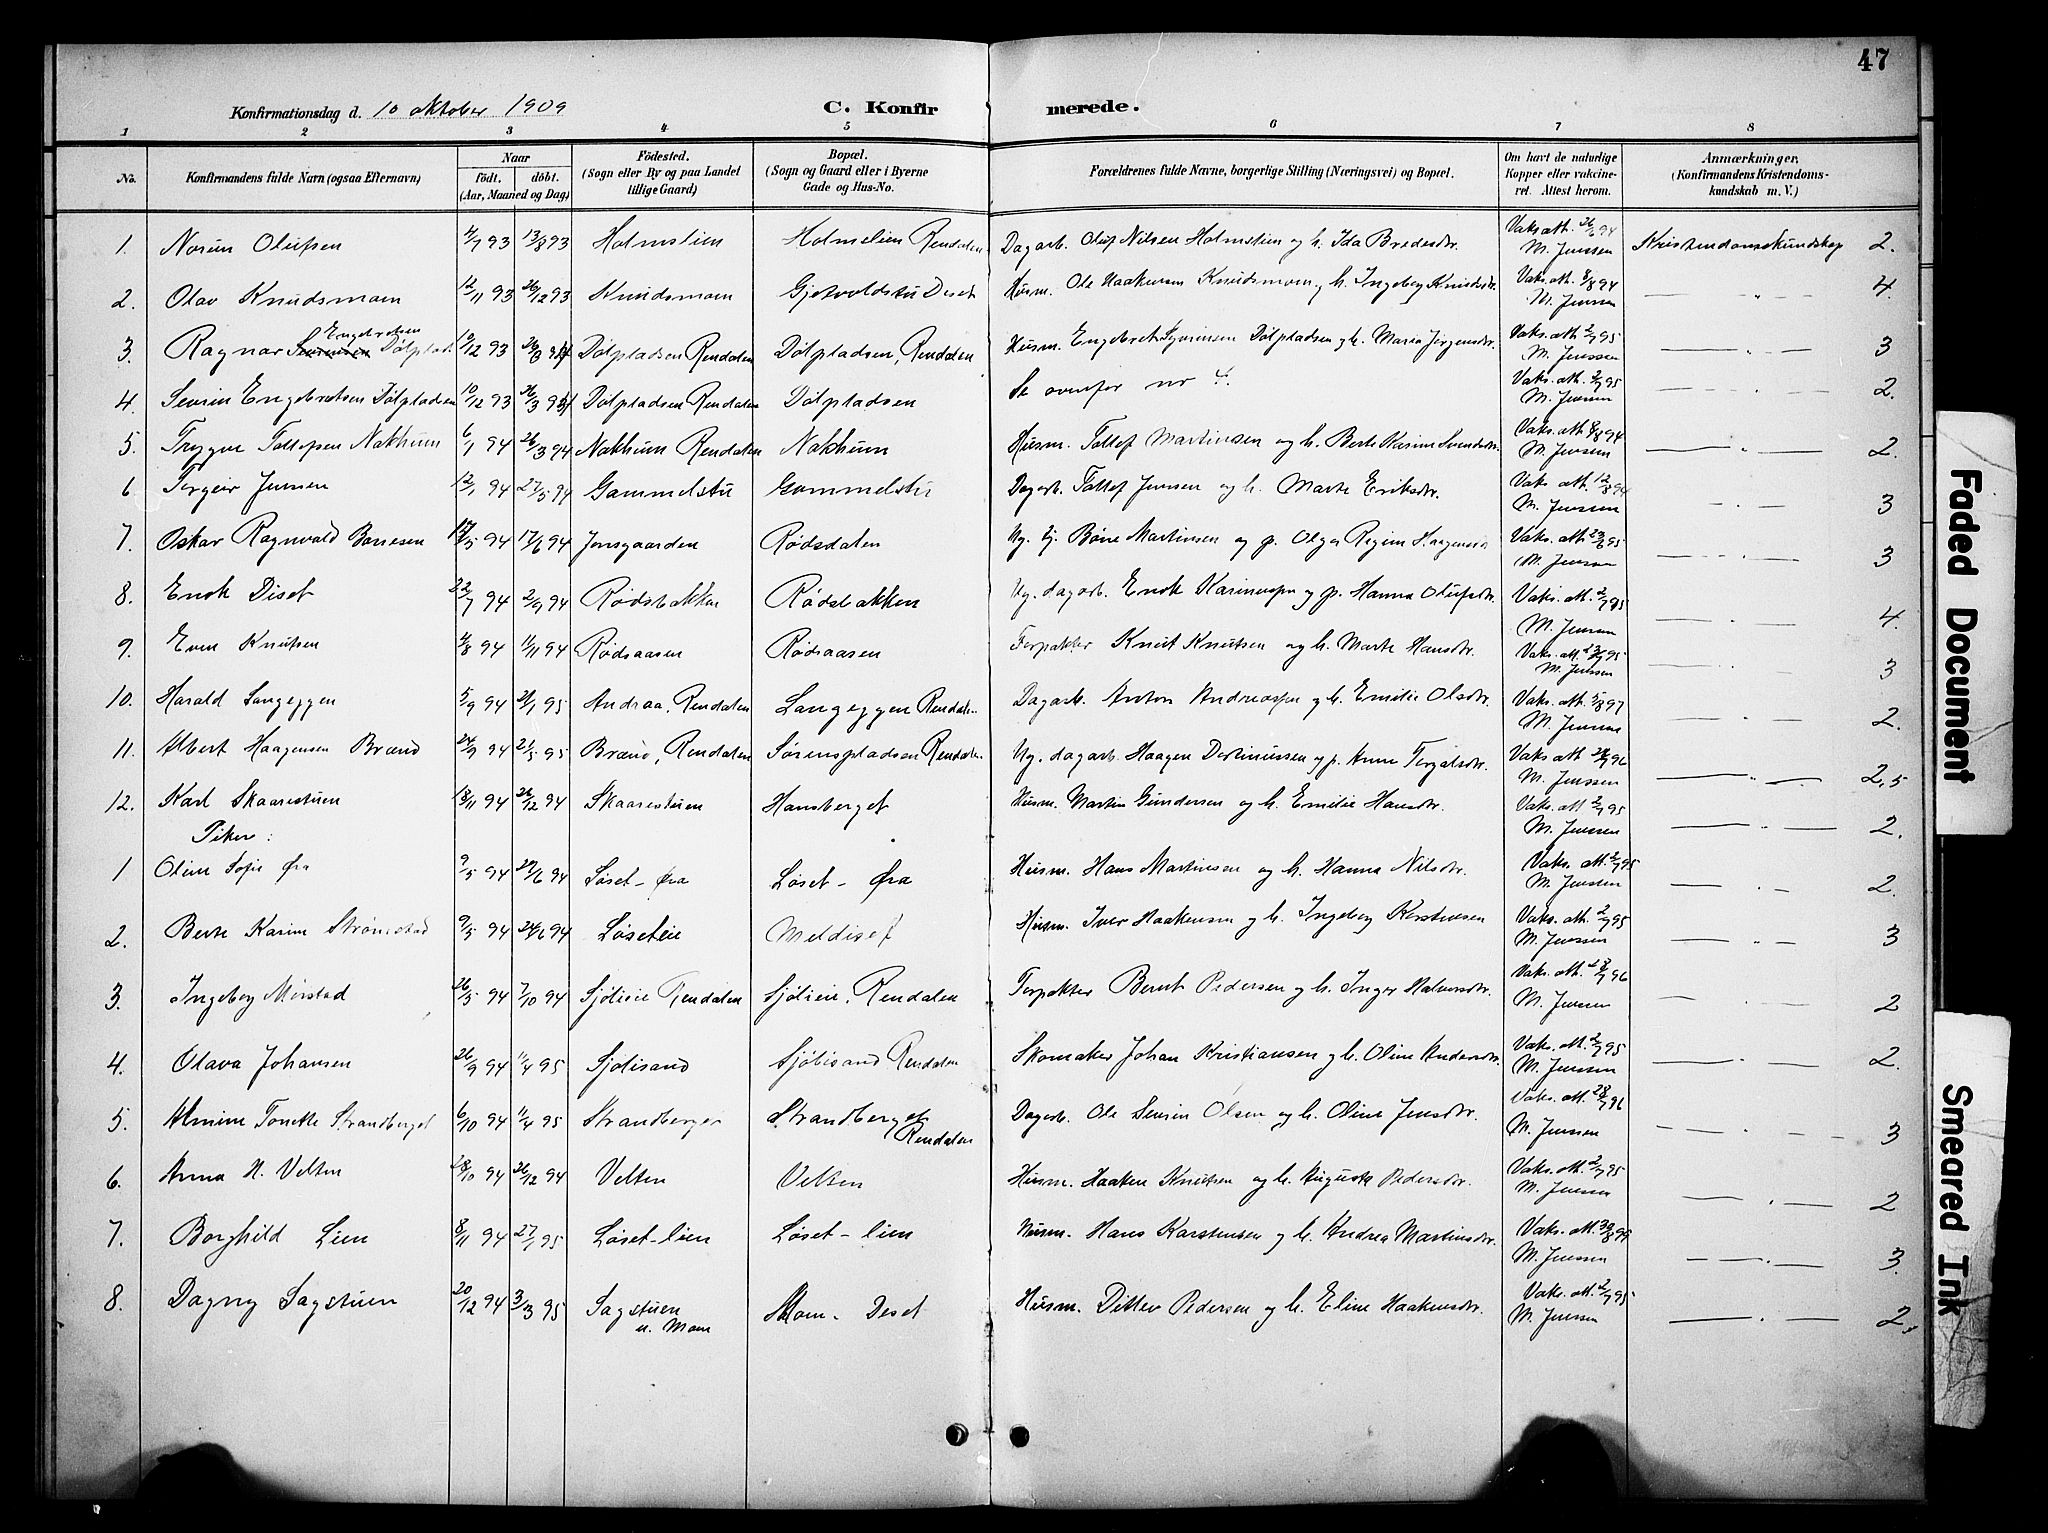 47
Konfirmationsdag d. 10 oktober 1909 C. Konfirmerede.
1 2 3 4 5 6 7 8
No. Konfirmandens fulde Navn (ogsaa Efternavn) Naar födt. döbt. (Aar, Maaned og Dag) Födested. (Sogn eller By og paa Landet tillige Gaard) Bopæl. (Sogn og Gaard eller i Byerne Gade og Hus-No. Forældrenes fulde Navne, borgerlige Stilling (Næringsvei) og Bopæl. Om havt de naturlige Kopper eller vakcineret. Attest herom. Anmærkninger. (Konfirmandens Kristendomskundskab m. V.)
1. Olufsen 4/7 93 13/8 93 Holmslien Holmslien Rendalen Dagarb. Oluf Nilsen Holmslien og h. Ida Bredesdtr. Vaks att. 26/6 94 M. Jenssen Kristendomskundskap 2.
2. Olav Knudsmoen 12/11 93 26/12 93 Knudsmoen Diset Husm. Ole Haakensen Knudsmoen og h. Ingeborg Knudsdtr. Vaks. att. 8/8 94 M. Jenssen — " — 4.
3. Ragnar Engebretsen Dølplads. /12 93 26/3 94 Dølpladsen Rendalen Dølpladsen, Rendalen Husm. Engebret Dølpladsen og h. Maria Jørgensdtr. Vaks att. 2/7 95 M. Jenssen — " — 3
4. Severin Engebretsen Dølpladsen 10/12 93 26/3 94 Dølpladsen Rendalen Dølpladsen Se ovenfor nr 4. Vaks. att. 2/7 95 M. Jenssen — " — 2.
5. Trygve Tollefsen Nakhum 6/1 94 26/3 94 Nakhum Rendalen Nakhum Husm. Tollef Martinsen og h. Berte Karine Vaks. att. 8/8 94 M. Jenssen — " — 2.
6 Torgeir Jensen 12/1 94 27/5 94 Gammelstu Gammelstu Dagarb. Tollef Jensen og h. Marte Eriksdtr. Vaks. att. 12/8 94 M. Jenssen — " — 3
7. Oskar Ragnvald Børresen /5 94 17/6 94 Jonsgaarden Rødsdalen Ug. Martinsen og p. Olga Vaks. att. 23/6 95 M. Jenssen — " — 3
8. Enok Diset 22/7 94 2/9 94 Rødsbakken Rødsbakken Ug. dagarb. Enok og p. Hanna Olufsdtr. Vaks. att. 2/7 95 M. Jenssen — " — 4.
9. Even Knutsen 4/8 94 1/11 94 Rødsaasen Rødsaasen Forpakter Knut Knutsen og h. Marte Hansdtr. Vaks. att. M. Jenssen — " — 3
10. Harald Langeggen 5/9 94 21/1 95 Andraa, Rendalen Langeggen Rendalen Dagarb. Anton Andreassen og h. Emilie Olsdtr. Vaks. att. M. Jenssen — " — 2.
11. Albert Haagensen Brænd 24/9 94 21/5 95 Brænd, Rendalen Sørenspladsen Rendalen Ug. dagarb. Haagen og p. Anne Vaks att. M. Jenssen — " — 2,5
12. Karl Skaarestuen 18/11 94 26/12 94 Skaarestuen Hansberget Husm. Martin Gundersen og h. Emilie Hansdtr. Vaks att 2/7 95 M. Jenssen — " — 2.
Piker:
1 Oline Sofie Øra 9/5 94 24/6 94 Løset-Øra Løset-Øra Husm. Hans Martinsen og h. Hanna Nilsdtr. Vaks. att. 2/7 95 M. Jenssen — " — 2.
2. Berte Karine Strømstad 9/5 94 24/6 94 Løseteie Meldiset Husm. Iver Haakensen og h. Ingeborg Karstensen Vaks att. 2/7 95 M. Jenssen — " — 3
3. Ingeborg Mørstad 26/5 94 7/10 94 Sjølieie Rendalen Sjølieie, Rendalen Forpakter Bernt Pedersen og h. Inger Halvorsdtr. Vaks. att. 28/7 96 M. Jenssen — " — 2
4. Olava Johansen 26/9 94 11/4 95 Sjølisand Sjølisand Rendalen Skomaker Johan Kristiansen og h. Oline Andersdtr. Vaks. att. 2/7 95 M. Jenssen — " — 2.
5. Almine Tonette Strandberget 6/10 94 11/4 95 Strandberget Strandberget Rendalen Dagarb. Ole Severin Olsen og h. Oline Jensdtr. Vaks. att. 28/7 96 M. Jenssen — " — 3
6. Anna H. Velten 28/10 94 26/12 94 Velten Velten Husm. Haaken Knutsen og h. Auguste Pedersdtr. Vaks. att. 2/7 95 M. Jenssen — " — 2
7. Borghild Lien 8/11 94 27/1 95 Løset-lien Løset-lien Husm. Hans Karstensen og h. Andrea Martinsdtr. Vaks. att. M. Jenssen — " — 3.
8. Dagny Sagstuen 20/12 94 3/3 95 Sagstuen u. Moen Moen. Diset Husm. Ditlev Pedersen og h. Eline Haakensdtr. Vaks. att. 2/7 95 M. Jenssen — " — 2.
Faded Document
Smeared Ink